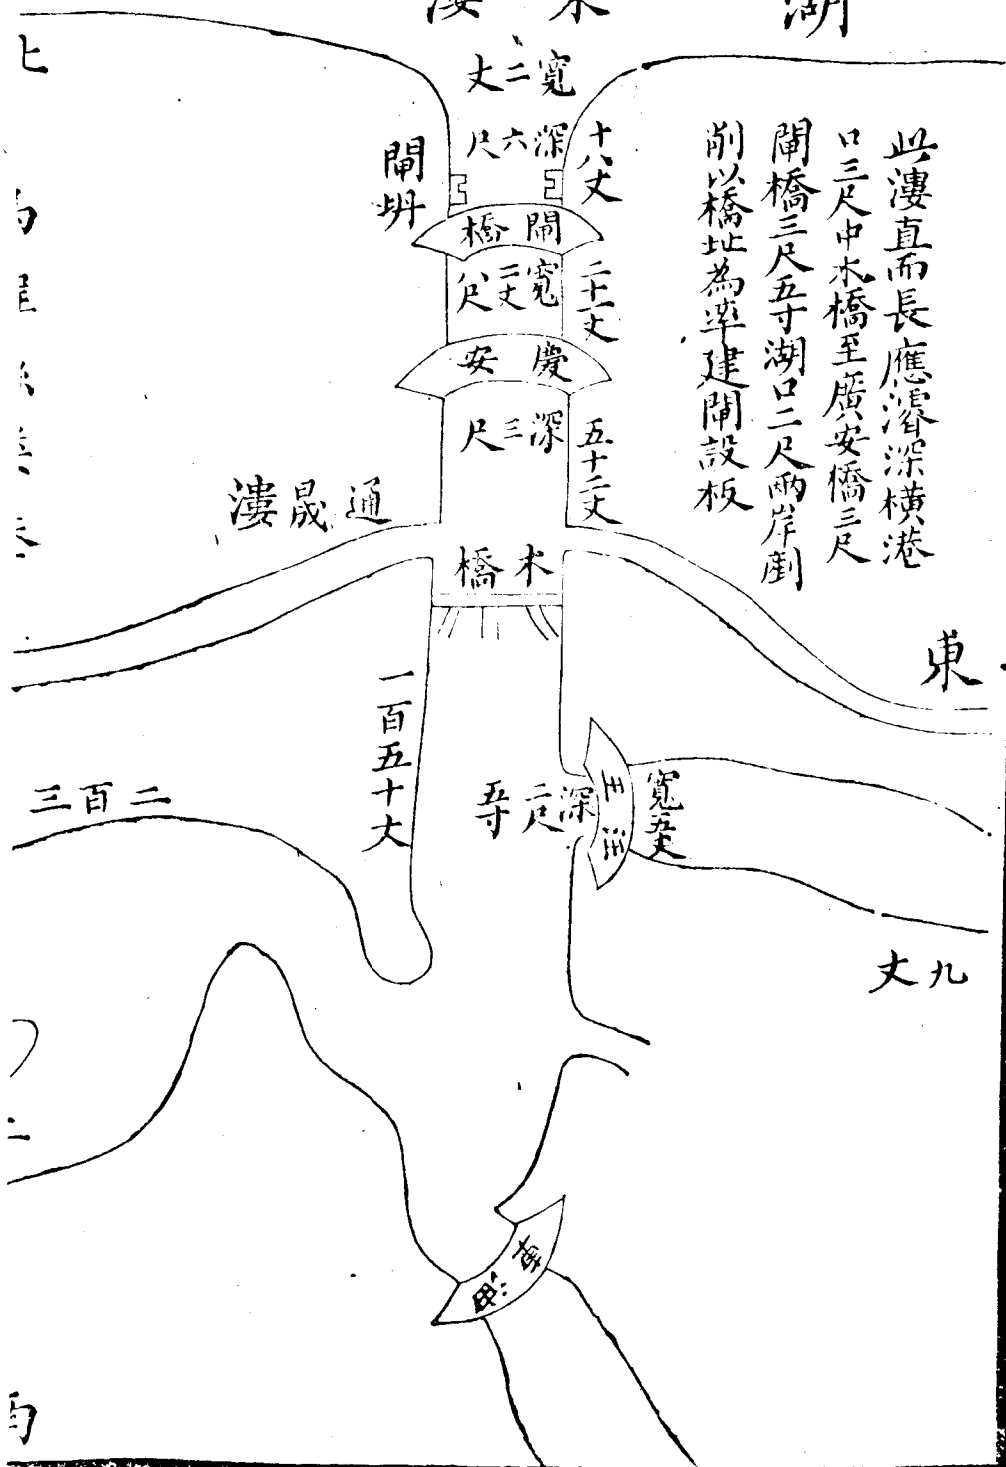 湖
此漊直而長應濬深橫港
口三尺中木橋至廣安橋三尺
閘橋三尺五寸湖口二尺兩岸剷
削以橋址為準建閘設板
東
寬二丈
深六尺
十八丈
閘坍
閘橋
寬二丈八尺
二十一丈
慶安
深三尺
五十二丈
通晟漊
木橋
一百五十丈
深二尺五寸
寬五丈
二百三
九丈